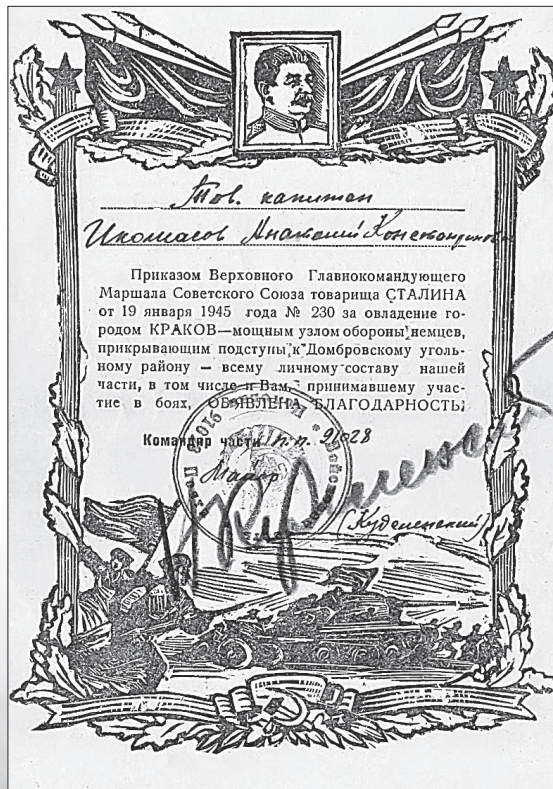 Тов. капитан
Анатолий Константинов
Приказом Верховного Главнокомандующего
Маршала Советского Союза товарища СТАЛИНА
от 19 января 1945 года № 230 за овладение го-
родом КРАКОВ—мощным узлом обороны немцев,
прикрывающим подступы к Домбровскому уголь-
ному району — всему личному составу нашей
части, в том числе и Вам, принимавшему учас-
тие в боях, ОБЪЯВЛЕНА БЛАГОДАРНОСТЬ:
Командир части п.п. 91028
Майор